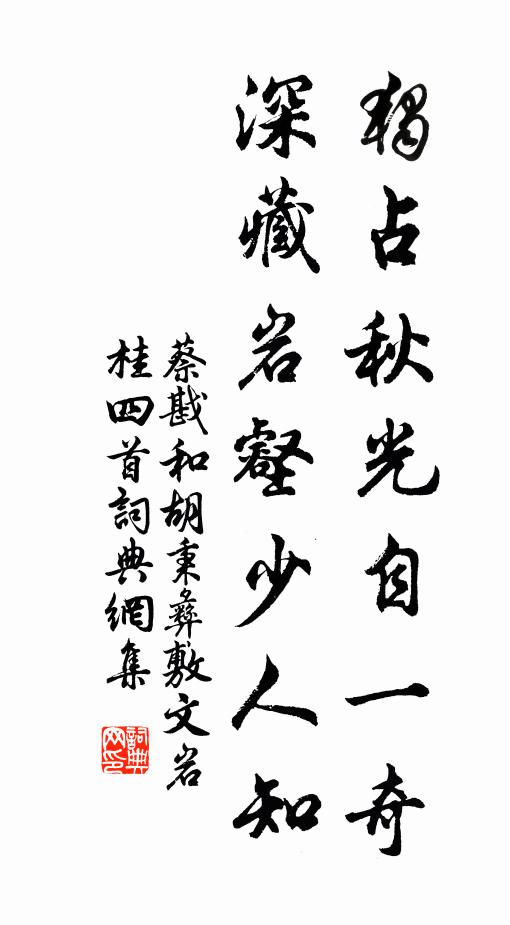 獨占秋光自一奇
深藏岩壑少人知
蔡戡和胡秉彝敷文岩
桂四首詞典網集
詞典網印